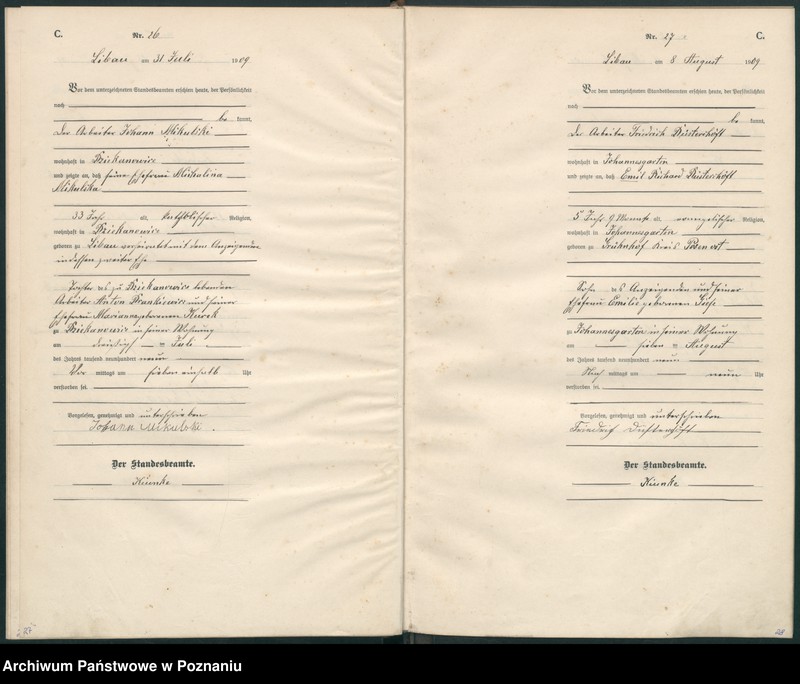 C.
Nr. 26
Libau am 31 Juli 1909
Vor dem unterzeichneten Standesbeamten erschien heute, der Persönlichkeit
nach
be kannt,
der Arbeiter Johann Mikulski
wohnhaft in Dziekanowice
und zeigte an, daß seine Ehefrau
Mikulska
33 Jahr alt, katholischer Religion,
wohnhaft in Dziekanowice
geboren zu Libau verheiratet mit dem Anzeigenden
in dessen zweiter Ehe
Tochter des zu Dziekanowice lebenden
Arbeiter Anton Frankiewicz und seiner
Ehefrau Marianna geborenen Kurek
zu Dziekanowice in seiner Wohnung
am dreißigsten Juli
des Jahres tausend neunhundert neun
Vor mittags um sieben einhalb Uhr
verstorben sei.
Vorgelesen, genehmigt und unterschrieben
Johann Mikulski.
Der Standesbeamte.
Kuenke
27
Nr. 27
C.
Libau am 8 August 1909
Vor dem unterzeichneten Standesbeamten erschien heute, der Persönlichkeit
nach
be kannt,
der Arbeiter Friedrich Düsterhöft
wohnhaft in Johannesgarten
und zeigte an, daß Emil Richard Düsterhöft
5 Jahr 9 Monate alt, evangelischer Religion,
wohnhaft in Johannesgarten
geboren zu Kreis Posen ost
Sohn des Anzeigenden und seiner
Ehefrau Emilie geborenen
zu Johannesgarten in seiner Wohnung
am sieben August
des Jahres tausend neunhundert neun
Nach mittags um neun Uhr
verstorben sei.
Vorgelesen, genehmigt und unterschrieben
Friedrich Düsterhöft
Der Standesbeamte.
Kuenke
28
Archiwum Państwowe w Poznaniu